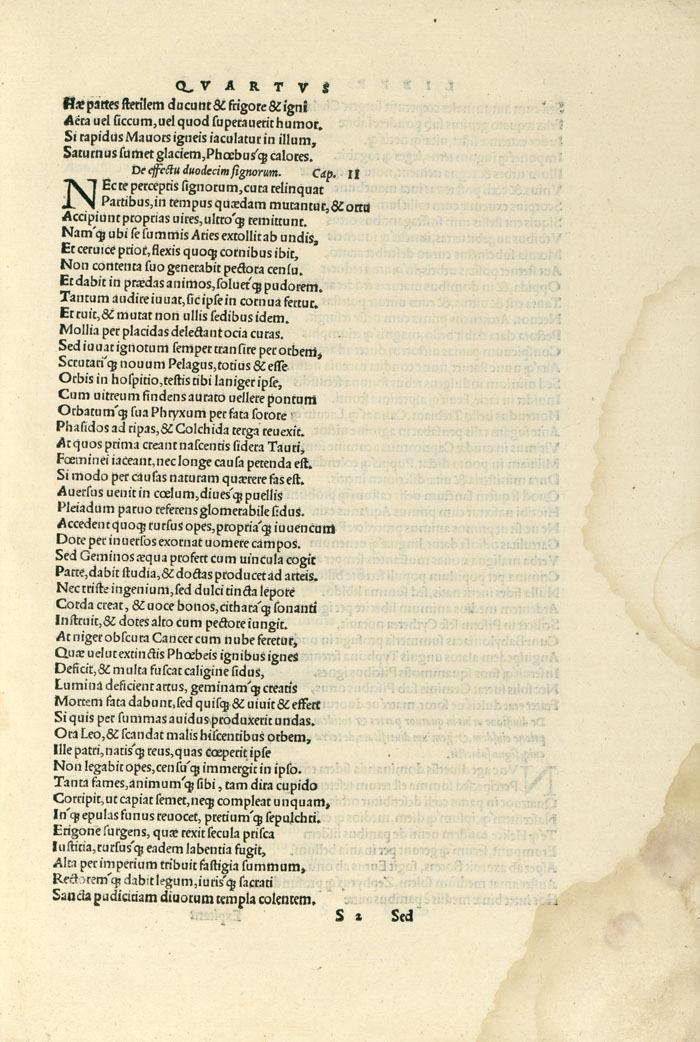 QVARTVS
Hæ partes sterilem ducunt & frigore & igni
Aëra uel siccum, uel quod superauerit humor.
Si rapidus Mauors igneis iaculatur in illum,
Saturnus sumet glaciem, Phœbusq́; calores.
De effectu duodecim signorum. Cap. II
NEc te perceptis signorum, cura relinquat
Partibus, in tempus quædam mutantur, & ortu
Accipiunt proprias uires, ultroq́; remittunt.
Namq́; ubi se summis Aries extollit ab undis,
Et ceruice prior, flexis quoq; cornibus ibit,
Non contenta suo generabit pectora censu.
Et dabit in prædas animos, soluetq́; pudorem.
Tantum audire iuuat, sic ipse in cornua fertur.
Et ruit, & mutat non ullis sedibus idem.
Mollia per placidas delectant ocia curas.
Sed iuuat ignotum semper transire per orbem,
Scrutariq́; nouum Pelagus, totius & esse
Orbis in hospitio, testis tibi laniger ipse,
Cum uitreum findens aurato uellere pontum
Orbatumq́; sua Phryxum per fata sorore
Phasidos ad ripas, & Colchida terga reuexit.
At quos prima creant nascentis sidera Tauri,
Fœminei iaceant, nec longe causa petenda est.
Si modo per causas naturam quærere fas est.
Auersus uenit in cœlum, diuesq́; puellis
Pleiadum paruo referens glomerabile sidus.
Accedent quoq; rursus opes, propriaq́; iuuencum
Dote per inuersos exornat uomere campos.
Sed Geminos æqua profert cum uincula cogit
Parte, dabit studia, & doctas producet ad arteis.
Nec triste ingenium, sed dulci tincta lepore
Corda creat, & uoce bonos, citharaq́; sonanti
Instruit, & dotes alto cum pectore iungit.
At niger obscura Cancer cum nube feretur,
Quæ uelut extinctis Phœbeis ignibus ignes
Deficit, & multa fuscat caligine sidus,
Lumina deficient artus, geminamq́; creatis
Mortem fata dabunt, sed quisq; & uiuit & effert
Si quis per summas auidus produxerit undas.
Ora Leo, & scandat malis hiscentibus orbem,
Ille patri, natisq́; reus, quas cœperit ipse
Non legabit opes, censuq́; immergit in ipso.
Tanta fames, animumq́; sibi, tam dira cupido
Corripit, ut capiat semet, neq; compleat unquam,
Inq́; epulas funus reuocet, pretiumq́; sepulchri.
Erigone surgens, quæ rexit secula prisca
Iustitia, rursusq́; eadem labentia fugit,
Alta per imperium tribuit fastigia summum,
Rectoremq́; dabit legum, iurisq́; sacrati
Sancta pudicitiam diuorum templa colentem.
S 2 Sed